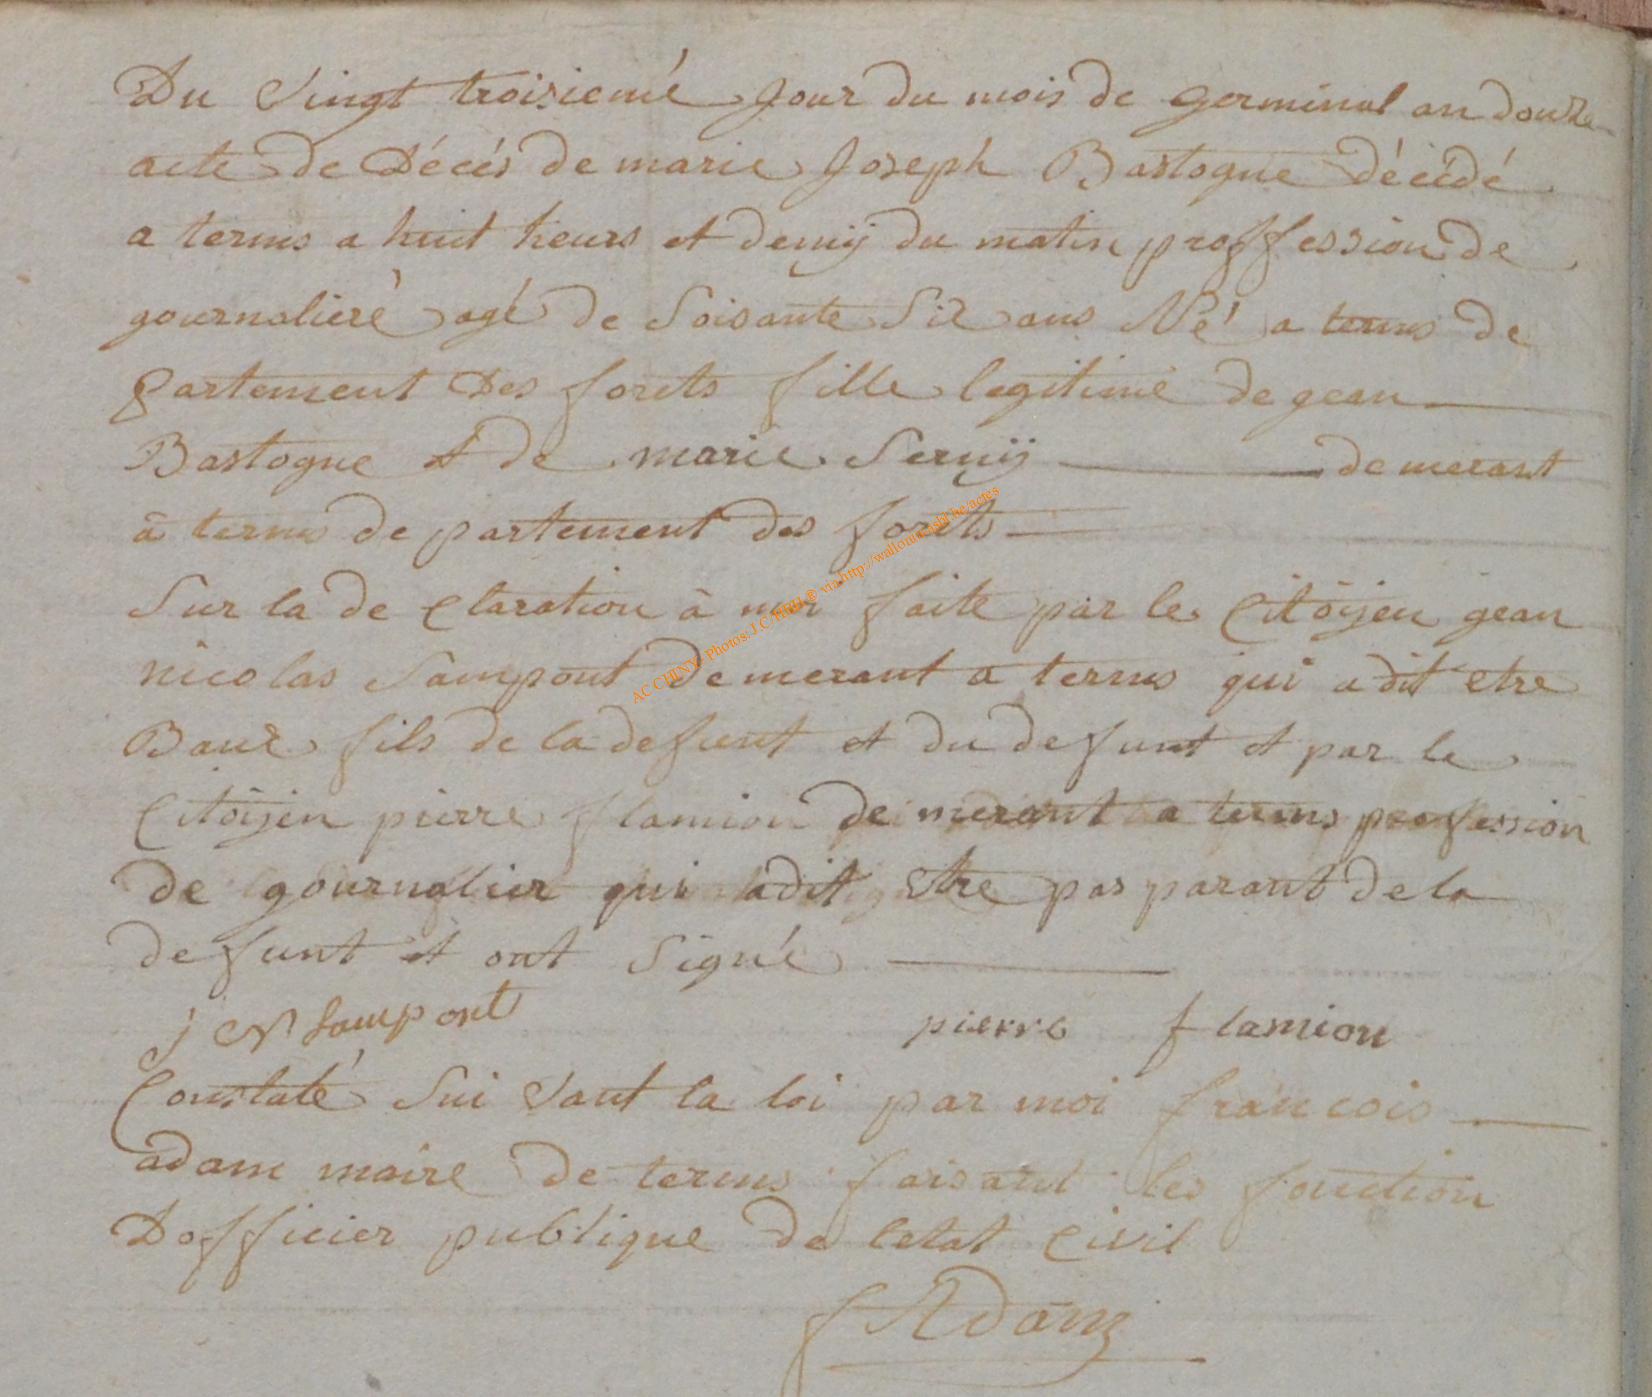 Du vingt troisieme jour du mois de germinal an douze
acte de Décés de marie Joseph Bastogne décédé
a terms a huit heurs et demij du matin proffession de
gournaliere agé de Soisante Six ans Né a terms de
partement Des forets fille legitime de gean
Bastogne et de marie Sernij demerant
à terms de partement des forets
Sur la de claration à moi faite par le Citoÿen gean
nicolas Sampont demerant a terms qui a dit etre
Baux fils de la defunt et du defunt et par le
Citoÿen pierre flamion demerant a terms profession
de gournalier qui a dit etre pas parant de la
defunt et ont Signé
j N Sampont pierre flamion
Constaté Sui vant la loi par moi francois
adam maire de terms faisant les fonction
Dofficier publique de letat Civil
f Adam
AC CHINY- Photos: J.C. ® via http://wallonica.be/actes